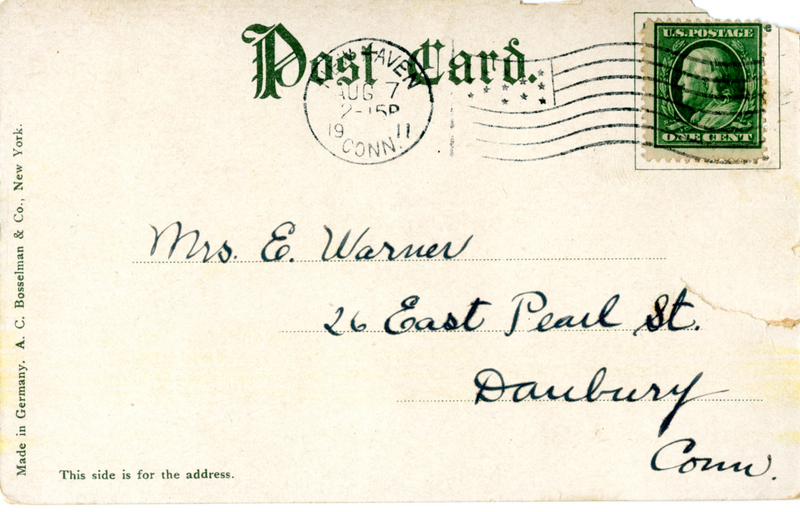 Post Card.
HAVEN
AUG 7
2-15P
19 11
CONN.
U.S. POSTAGE
ONE CENT
Mrs. E. Warner
26 East Pearl St.
Danbury
Conn.
This side is for the address.
Made in Germany. A. C. Bosselman & Co., New York.